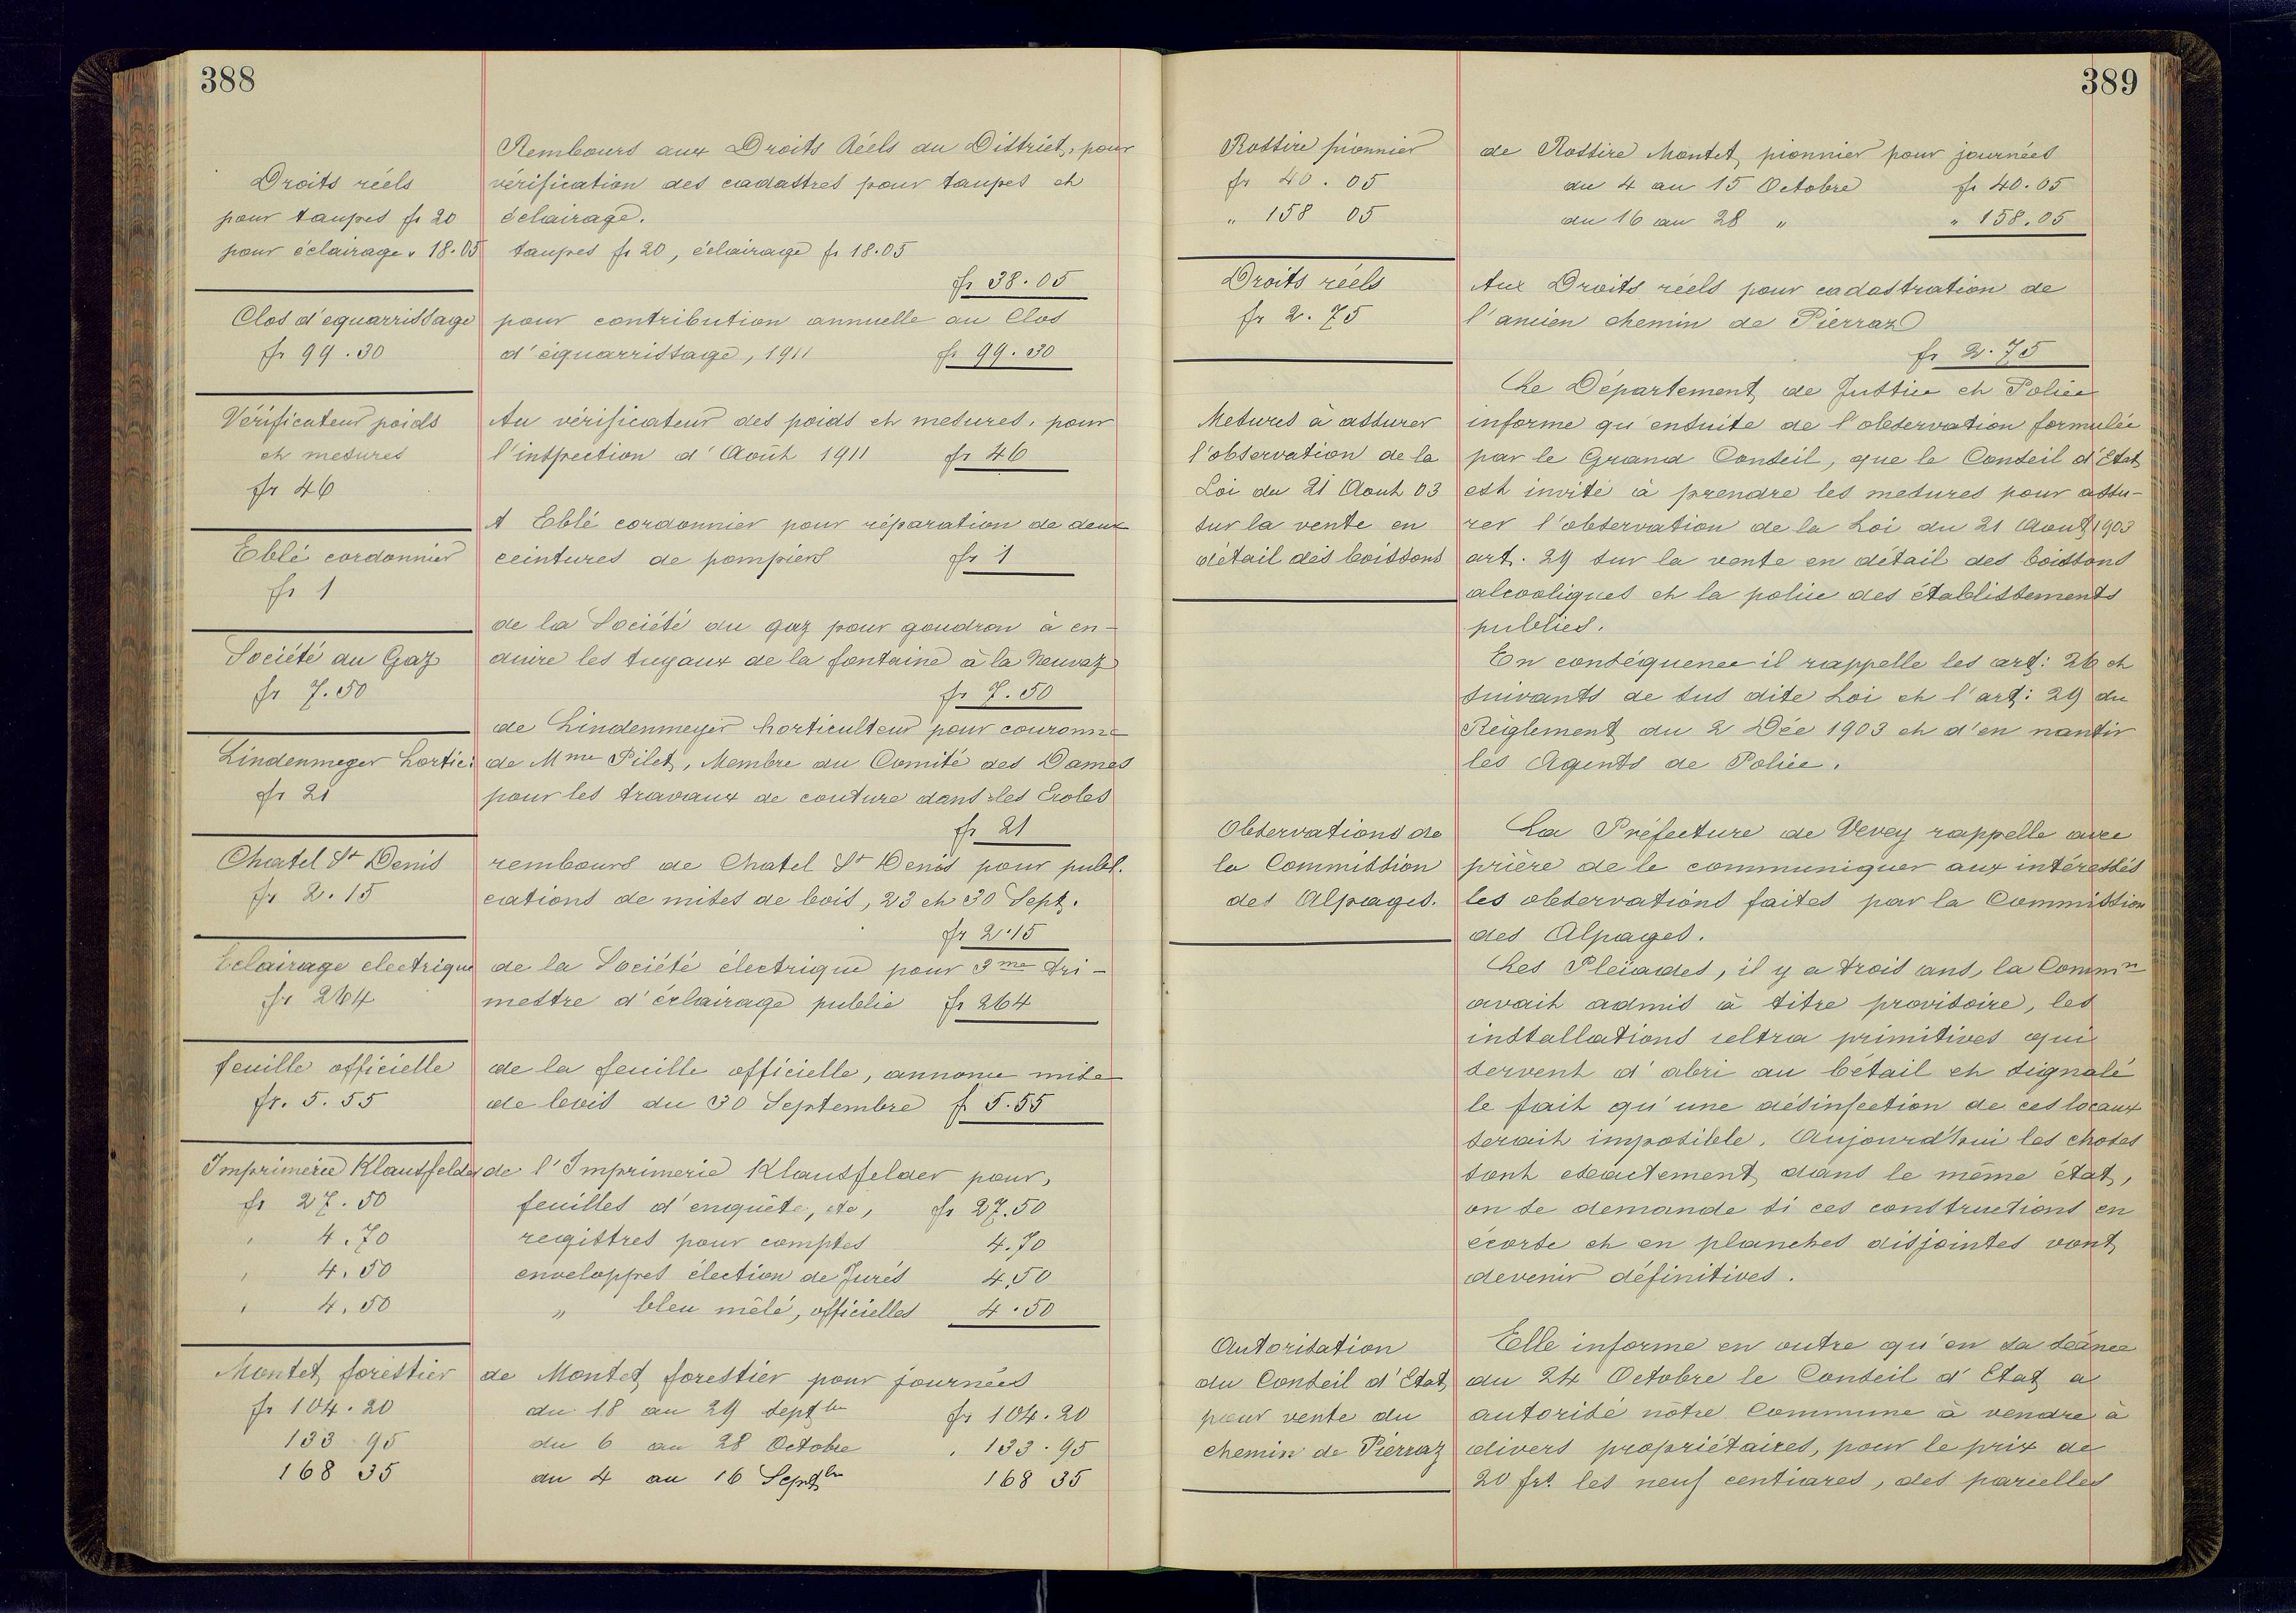 388
Droits réels
pour taupes fr 20
pour éclairage " 18.05
Rembours aux Droits Réels du District, pour
vérification des cadastres pour taupes et
éclairage.
taupes fr 20, éclairage fr 18.05
fr 38.05
Clos d'equarrissage
fr 99.30
pour contribution annuelle au Clos
d'équarrissage, 1911 fr 99.30
Vérificateur poids
et mesures
fr 46
Au vérificateur des poids et mesures, pour
l'inspection d'Août 1911 fr 46
Eblé cordonnier
fr 1
A Eblé cordonnier pour réparation de deux
ceintures de pompiers fr 1
Société du Gaz
fr 7.50
de la Société du gaz pour goudron à en-
duire les tuyaux de la fontaine à la Neuvaz
fr 7.50
Lindenmeyer hortic:
fr 21
de Lindenmeyer horticulteur pour couronne
de Mme Pilet, Membre du Comité des Dames
pour les travaux de couture dans les Ecoles
fr 21
Chatel St Denis
fr 2.15
rembours de Chatel St Denis pour publi-
cations de mises de bois, 23 et 30 Sept.
fr 2.15
Eclairage electrique
fr 264
de la Société électrique pour 3me tri-
mestre d'éclairage public fr 264
feuille officielle
fr. 5.55
de la feuille officielle, annonce mise
de bois du 30 Septembre f 5.55
Imprimerie Klausfelder
fr 27.50
" 4.70
" 4.50
" 4.50
de l'Imprimerie Klausfelder pour,
feuilles d'enquête, etc, fr 27.50
registres pour comptes 4.70
enveloppes élection de Jurés 4.50
" bleu mêlé, officielles 4.50
Montet forestier
fr 104.20
133 95
168 35
de Montet forestier pour journées
du 18 au 29 septbre fr 104.20
du 6 au 28 Octobre " 133.95
du 4 au 16 Septbre 168 35
389
Rossire pionnier
fr 40.05
" 158 05
de Rossire Montet pionnier pour journées
du 4 au 15 Octobre fr 40.05
du 16 au 28 " " 158.05
Droits réels
fr 2.75
Aux Droits réels pour cadastration de
l'ancien chemin de Pierraz
fr 2.75
Mesures à assurer
l'observation de la
Loi du 21 Aout 03
sur la vente en
détail des boissons
Le Département de Justice et Police
informe qu'ensuite de l'observation formulée
par le Grand Conseil, que le Conseil d'Etat
est invité à prendre les mesures pour assu-
rer l'observation de la Loi du 21 Aout 1903
art. 29 sur la vente en détail des boissons
alcooliques et la police des établissements
publics.
En conséquence il rappelle les art: 26 et
suivants de sus dite Loi et l'art: 29 du
Règlement du 2 Déc 1903 et d'en nantir
les Agents de Police.
Observations de
la Commission
des Alpages.
La Préfecture de Vevey rappelle avec
prière de le communiquer aux intéressés
les observations faites par la Commission
des Alpages.
Les Pleiades, il y a trois ans, la Commn
avait admis à titre provisoire, les
installations ultra primitives qui
servent d'abri au bétail et signalé
le fait qu'une désinfection de ces locaux
serait impossible. Aujourd'hui les choses
sont exactement dans le même état,
on se demande si ces constructions en
écorse et en planches disjointes vont
devenir définitives.
Autorisation
du Conseil d'Etat
pour vente du
chemin de Pierraz
Elle informe en outre qu'en sa séance
du 24 Octobre le Conseil d'Etat a
autorisé nôtre Commune à vendre à
divers propriétaires, pour le prix de
20 frs. les neuf centiares, des parcelles